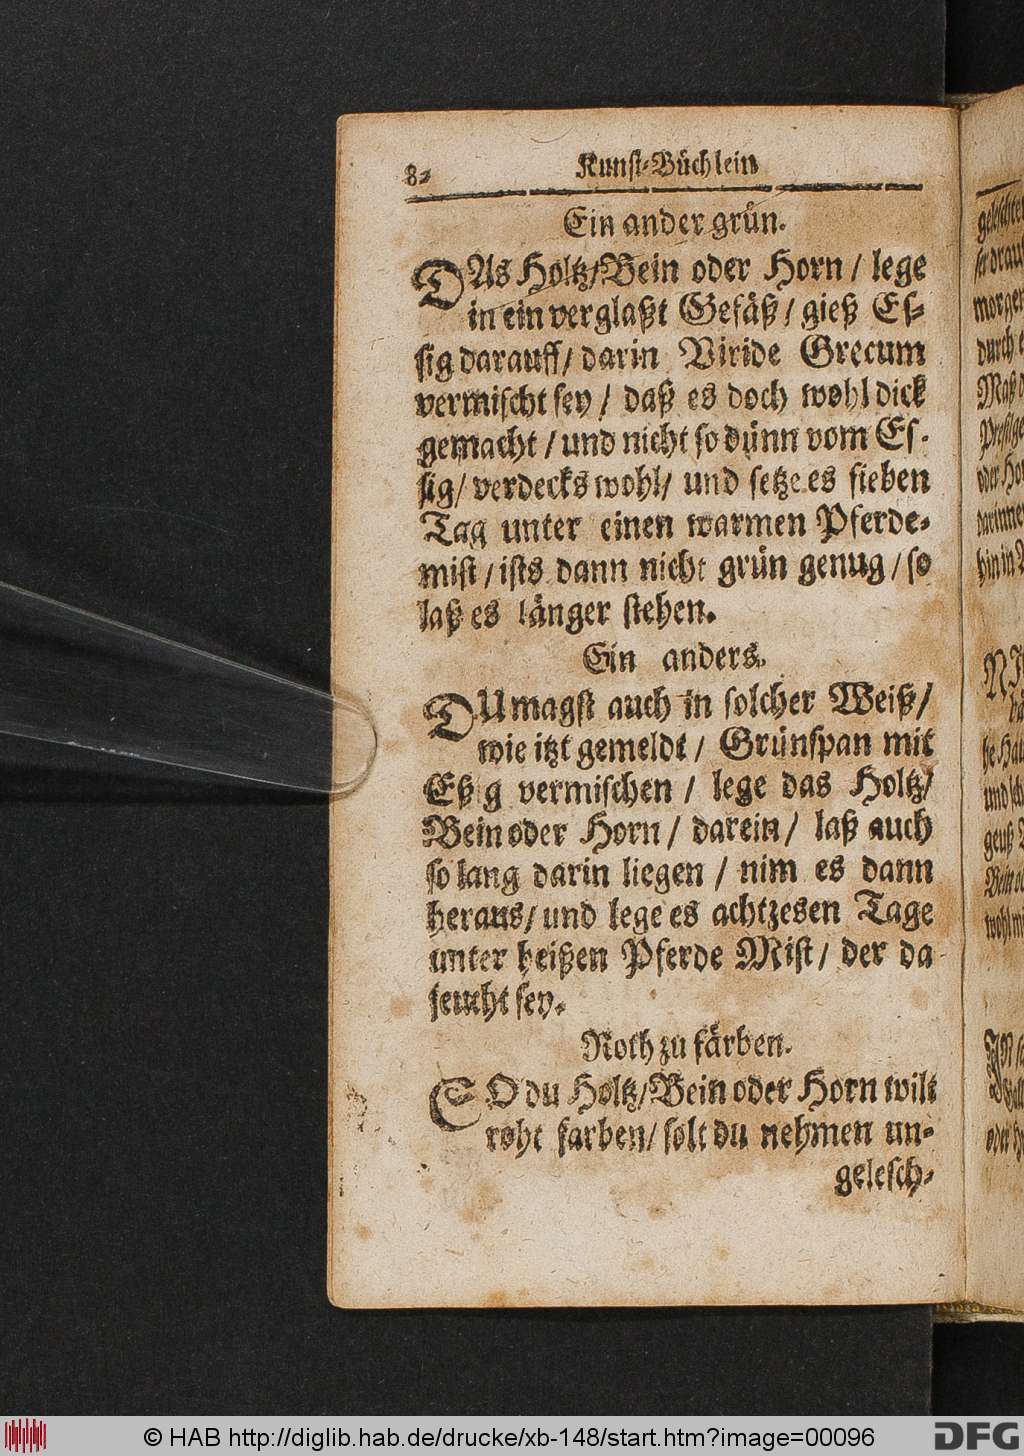 8.
Kunst-Büchlein
Ein ander grün.
DAs Holtz/Bein oder Horn / lege
in ein verglaßt Gefäß / gieß Es-
sig darauff / darin Viride Grecum
vermischt sey / daß es doch wohl dick
gemacht / und nicht so dünn vom Es-
sig / verdecks wohl / und setze es sieben
Tag unter einen warmen Pferde-
mist / ists dann nicht grün genug / so
laß es länger stehen.
Ein anders.
DU magst auch in solcher Weiß /
wie itzt gemeldt / Grünspan mit
Eßig vermischen / lege das Holtz /
Bein oder Horn / darein / laß auch
so lang darin liegen / nim es dann
heraus / und lege es achtzesen Tage
unter heißen Pferde Mist / der da
feucht sey.
Roth zu färben.
SO du Holtz/Bein oder Horn wilt
roht farben / solt du nehmen un-
gelesch-
© HAB http://diglib.hab.de/drucke/xb-148/start.htm?image=00096
DFG